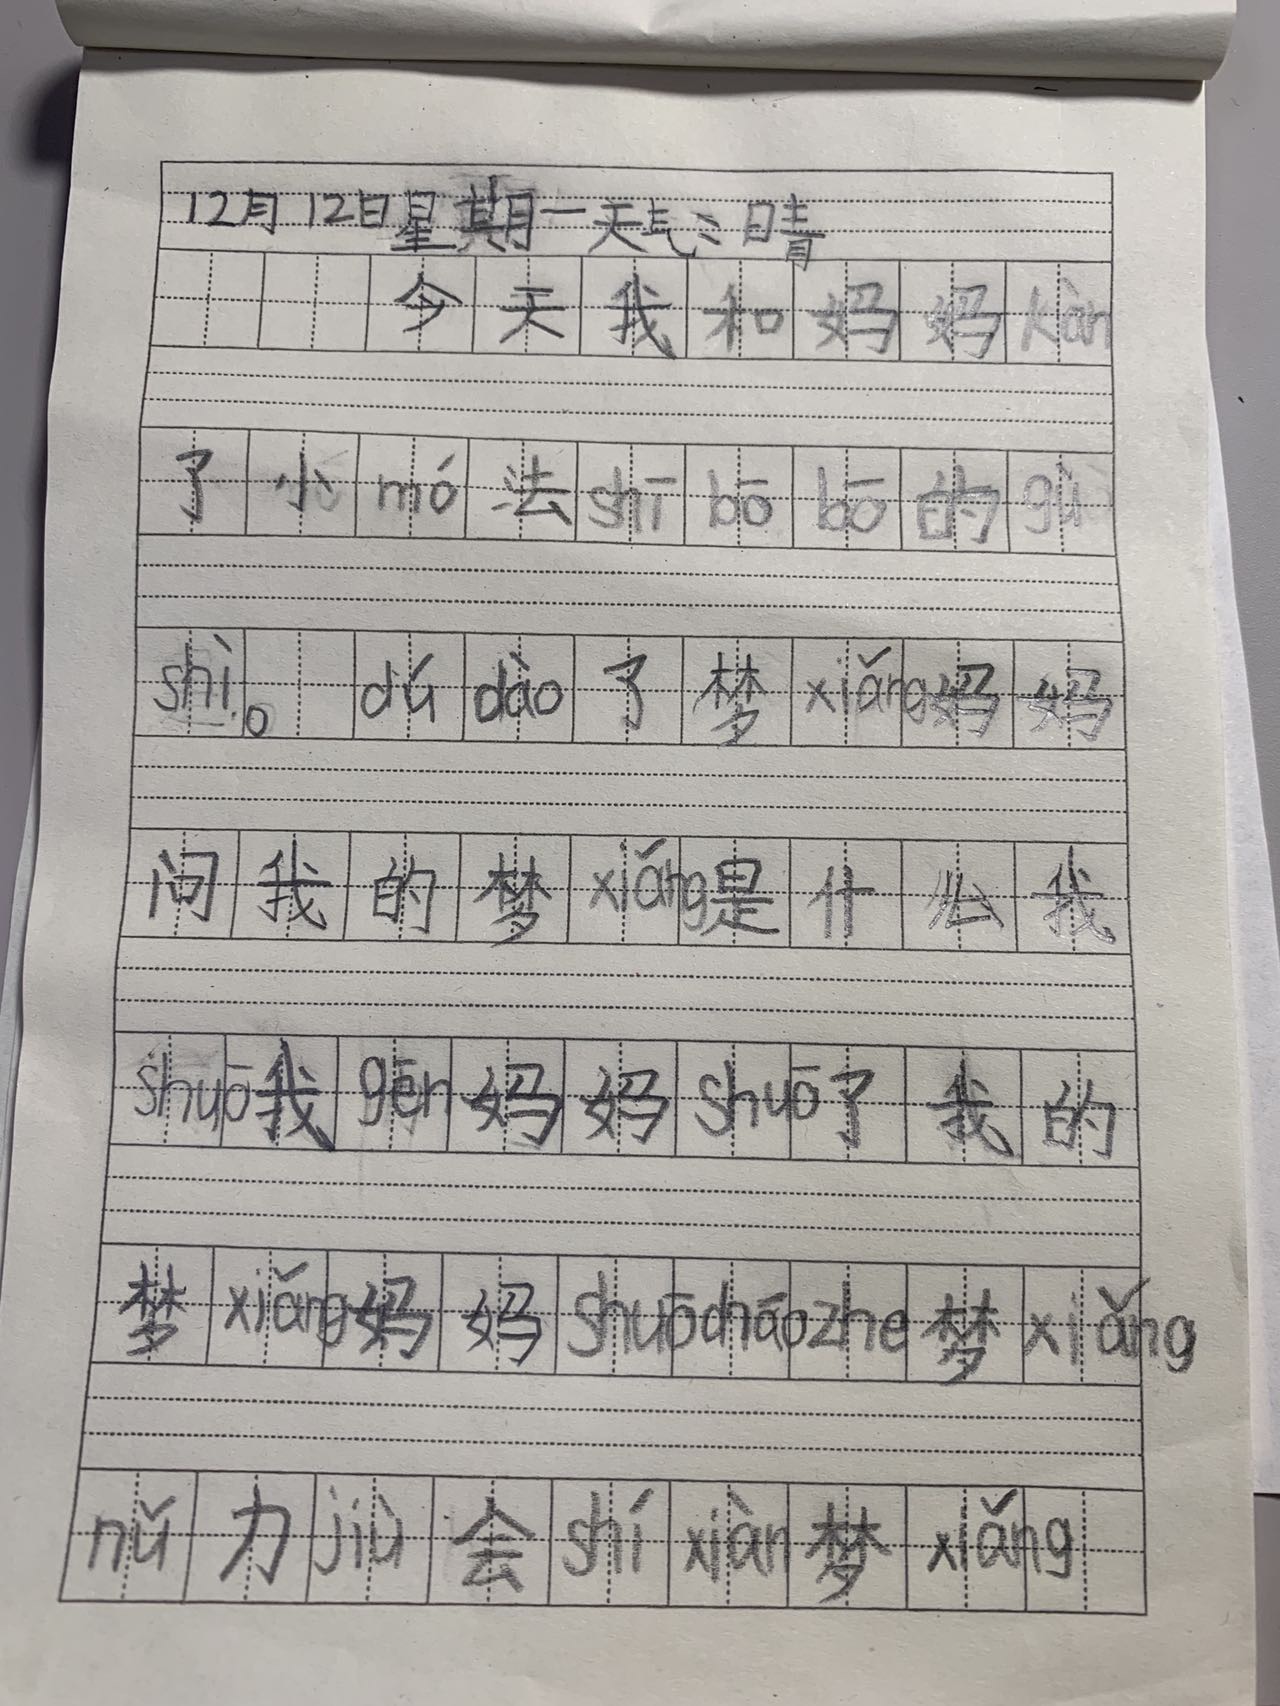 12月12日星期一天气：晴
今天我和妈妈kàn
了小mó法shī bō bō的gù
shì。dú dào了梦xiǎng妈妈
问我的梦xiǎng是什么我
shuō我gēn妈妈shuō了我的
梦xiǎng妈妈shuōcháozhe梦xiǎng
nǔ力jiù会shí xiàn梦xiǎng